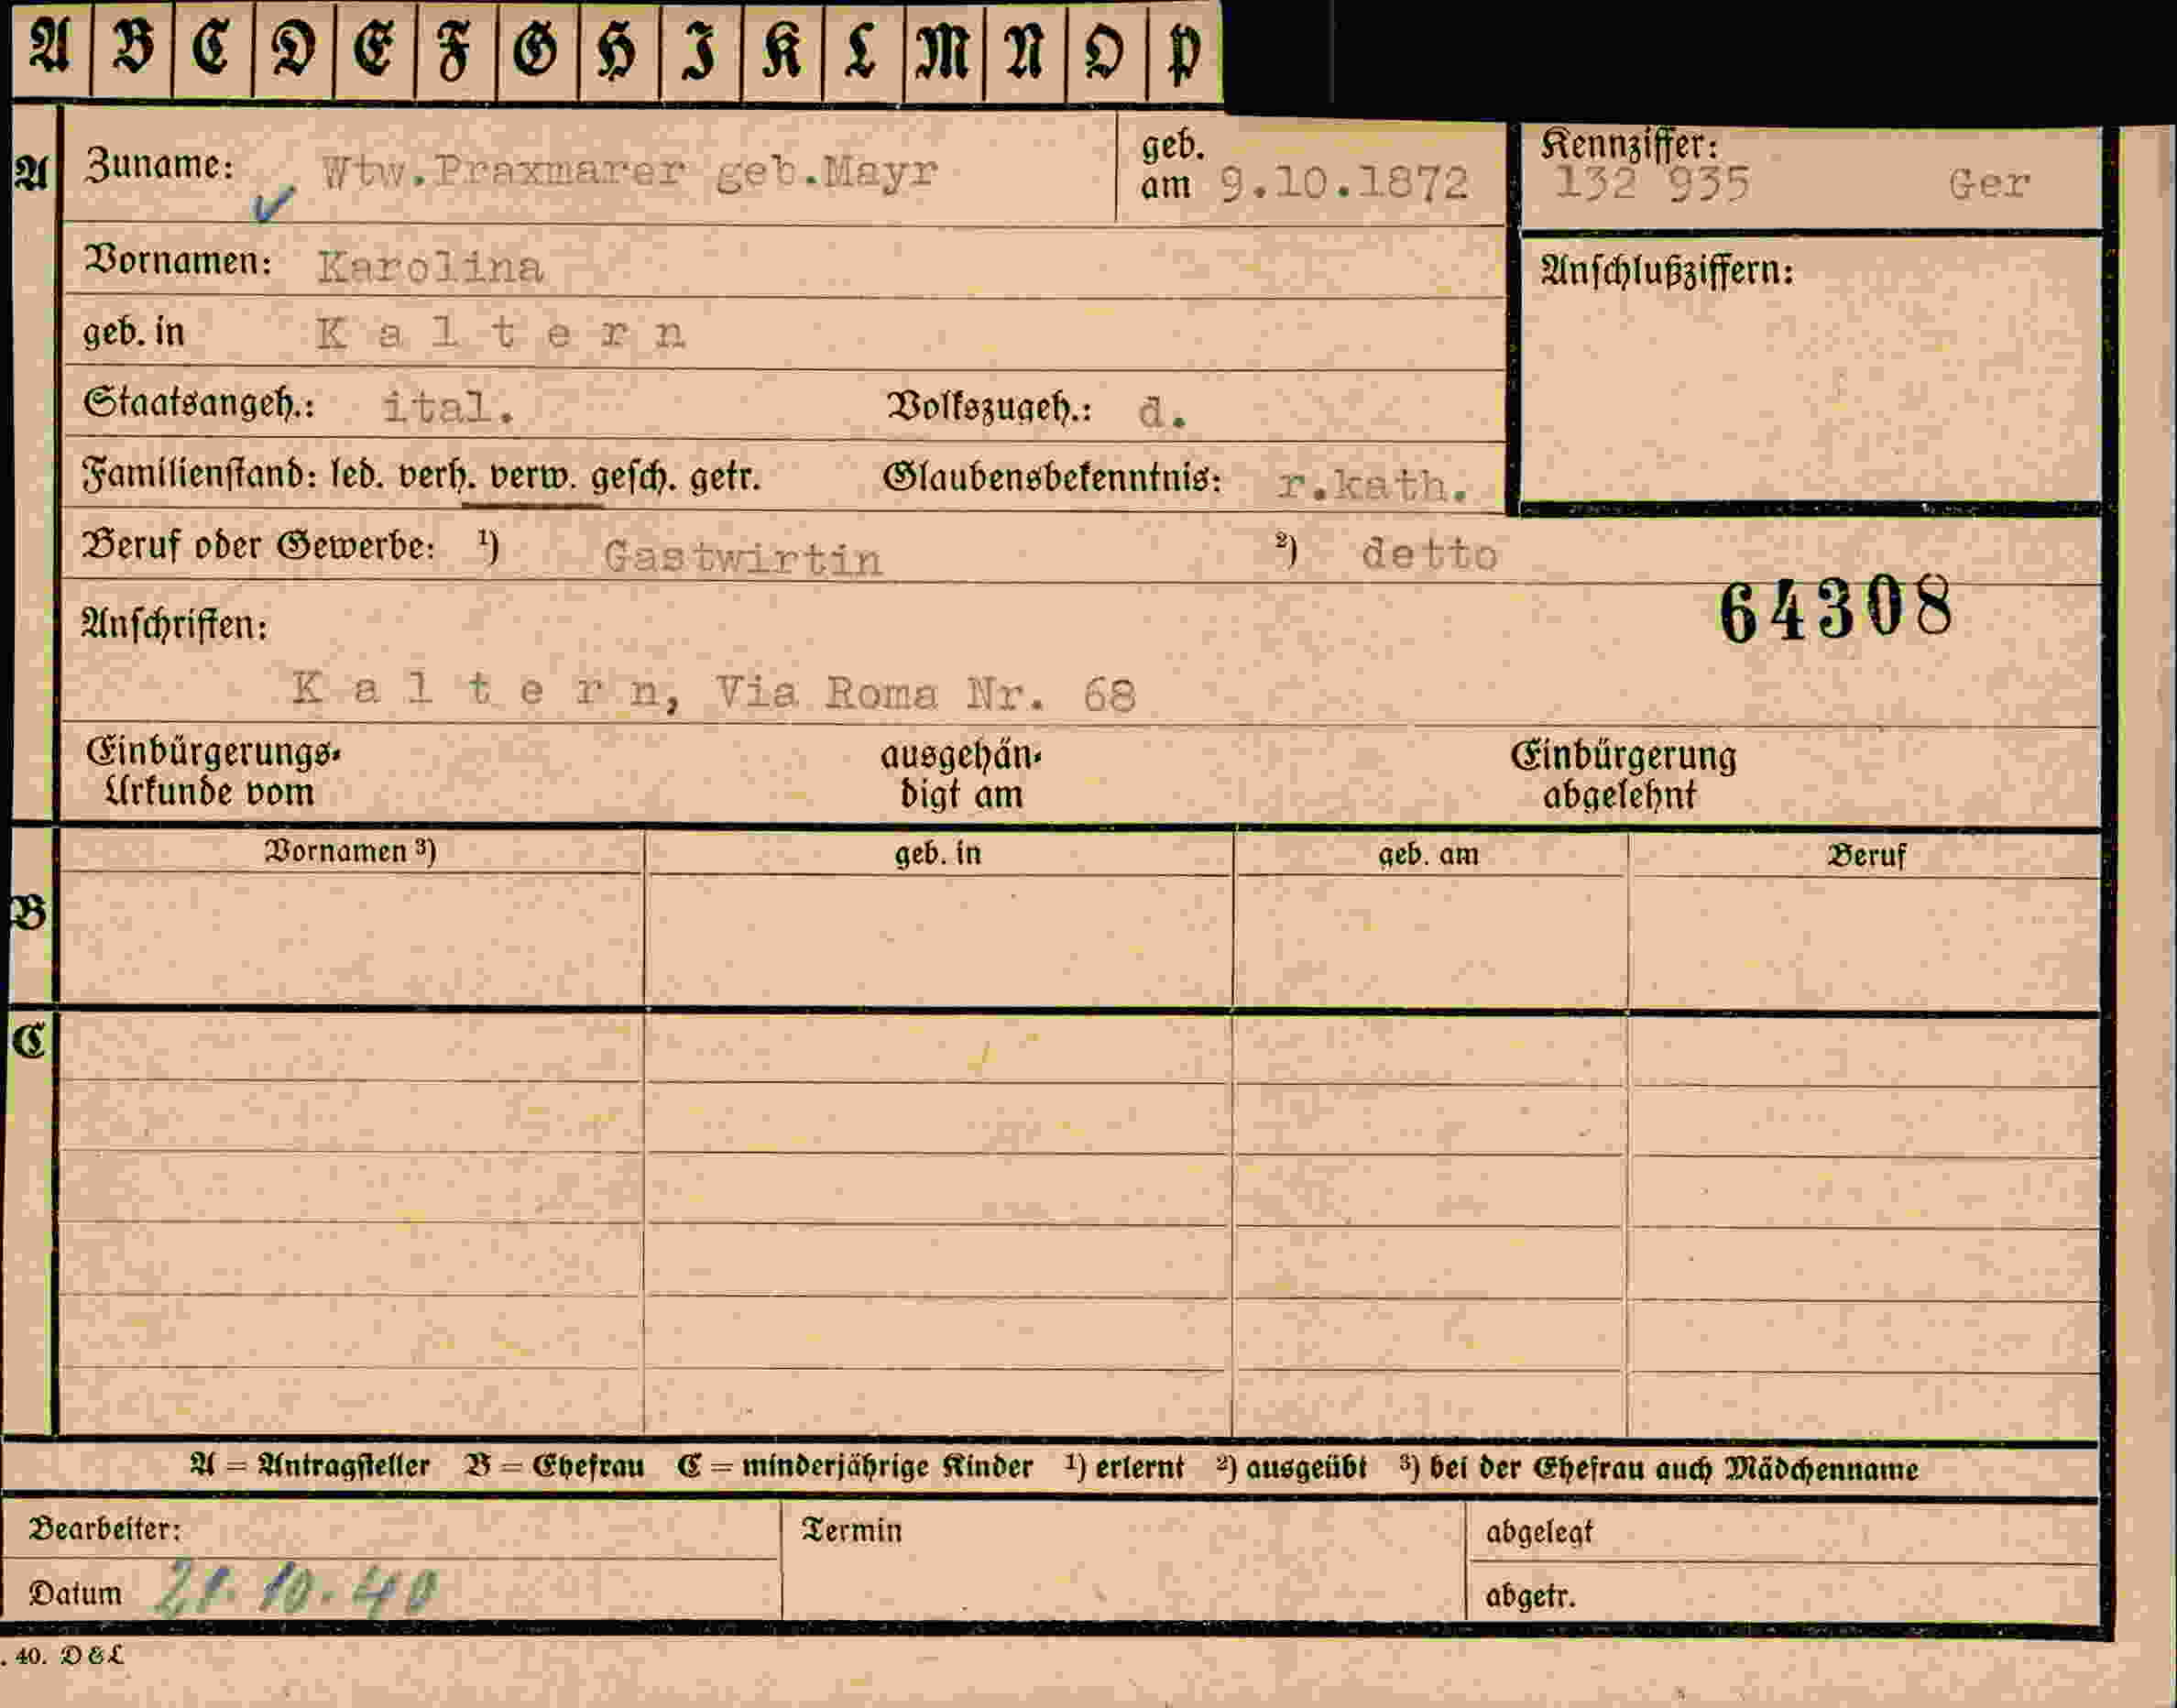 A B C D E F G H I K L M N O P
A Zuname: Wtw.Praxmarer geb.Mayr geb. am 9.10.1872 Kennziffer: 132 935 Ger
Vornamen: Karolina Anschlußziffern:
geb. in K a l t e r n
Staatsangeh.: ital. Volkszugeh.: d.
Familienstand: led. verh. verw. gesch. getr. Glaubensbekenntnis: r.kath.
Beruf oder Gewerbe: ¹) Gastwirtin ²) detto
64308
Anschriften:
K a l t e r n, Via Roma Nr. 68
Einbürgerungs- ausgehän- Einbürgerung
Urkunde vom digt am abgelehnt
Vornamen ³) geb. in geb. am Beruf
B
C
A = Antragsteller B = Ehefrau C = minderjährige Kinder ¹) erlernt ²) ausgeübt ³) bei der Ehefrau auch Mädchenname
Bearbeiter: Termin abgelegt
Datum 21.10.40 abgetr.
. 40. D & L